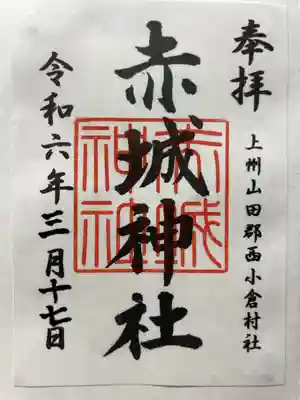 奉拝
上州山田郡西小倉村社
赤城神社
赤城
神社
令和六年三月十七日